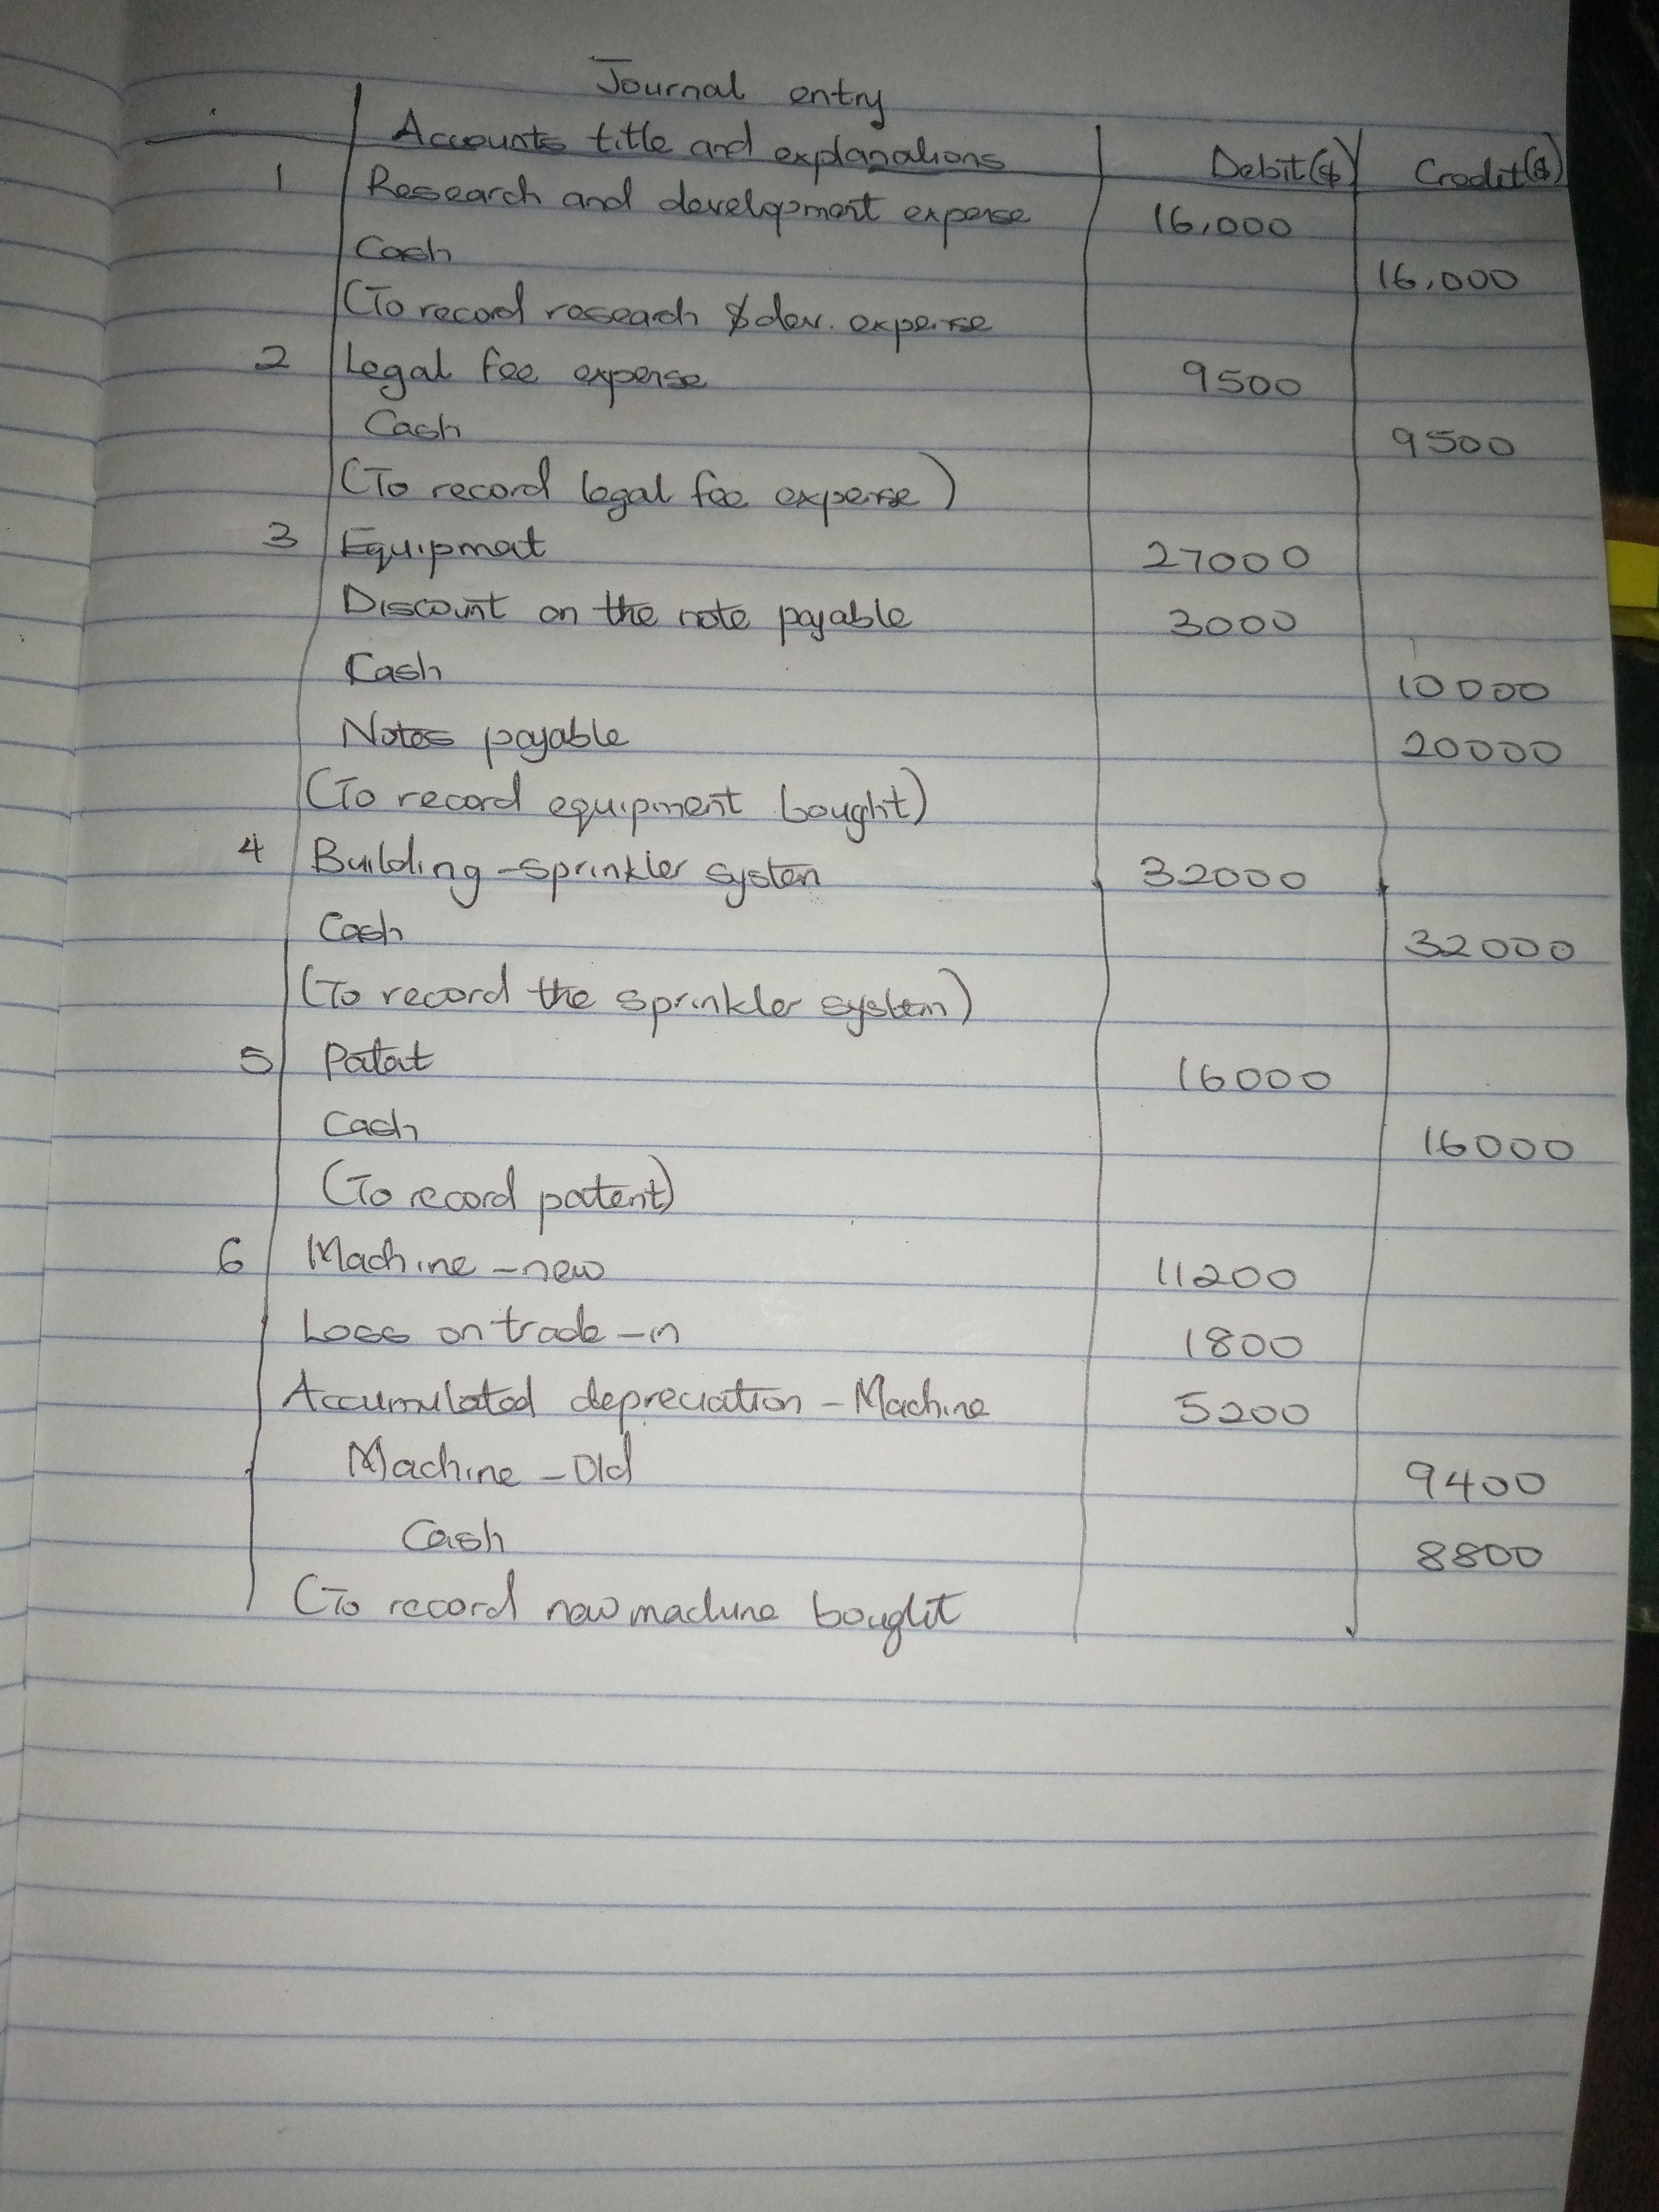 Journal entry
Accounts title and explanations Debit($) Credit($)
1 Research and development expense 16,000
Cash 16,000
(To record research & dev. expense
2 Legal fee expense 9500
Cash 9500
(To record legal fee expense)
3 Equipmat 27000
Discount on the note payable 3000
Cash 10000
Notes payable 20000
(To record equipment bought)
4 Building-sprinkler system 32000
Cash 32000
(To record the sprinkler system)
5 Patat 16000
Cash 16000
(To record patent)
6 Machine-new 11200
Loss on trade-in 1800
Accumulated depreciation-Machine 5200
Machine-Old 9400
Cash 8800
(To record new machine bought